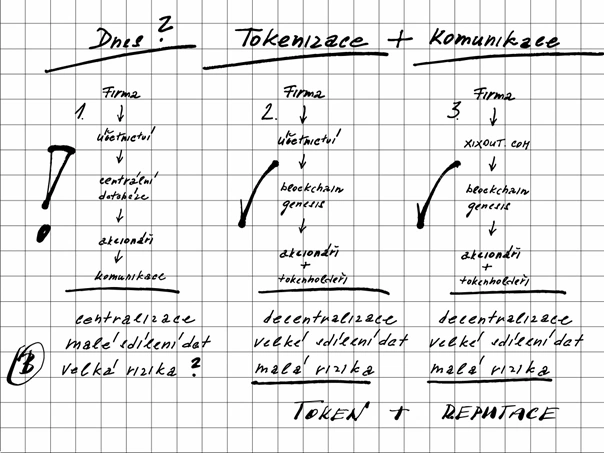 Dnes? Tokenizace + Komunikace
1. Firma
účetnictví
centrální
databáze
akcionáři
komunikace
centralizace
malé sdílení dat
velká rizika?
2. Firma
účetnictví
blockchain
genesis
akcionáři
+
tokenholdeři
decentralizace
velké sdílení dat
malá rizika
3. Firma
XIXOUT.COM
blockchain
genesis
akcionáři
+
tokenholdeři
decentralizace
velké sdílení dat
malá rizika
B
TOKEN + REPUTACE